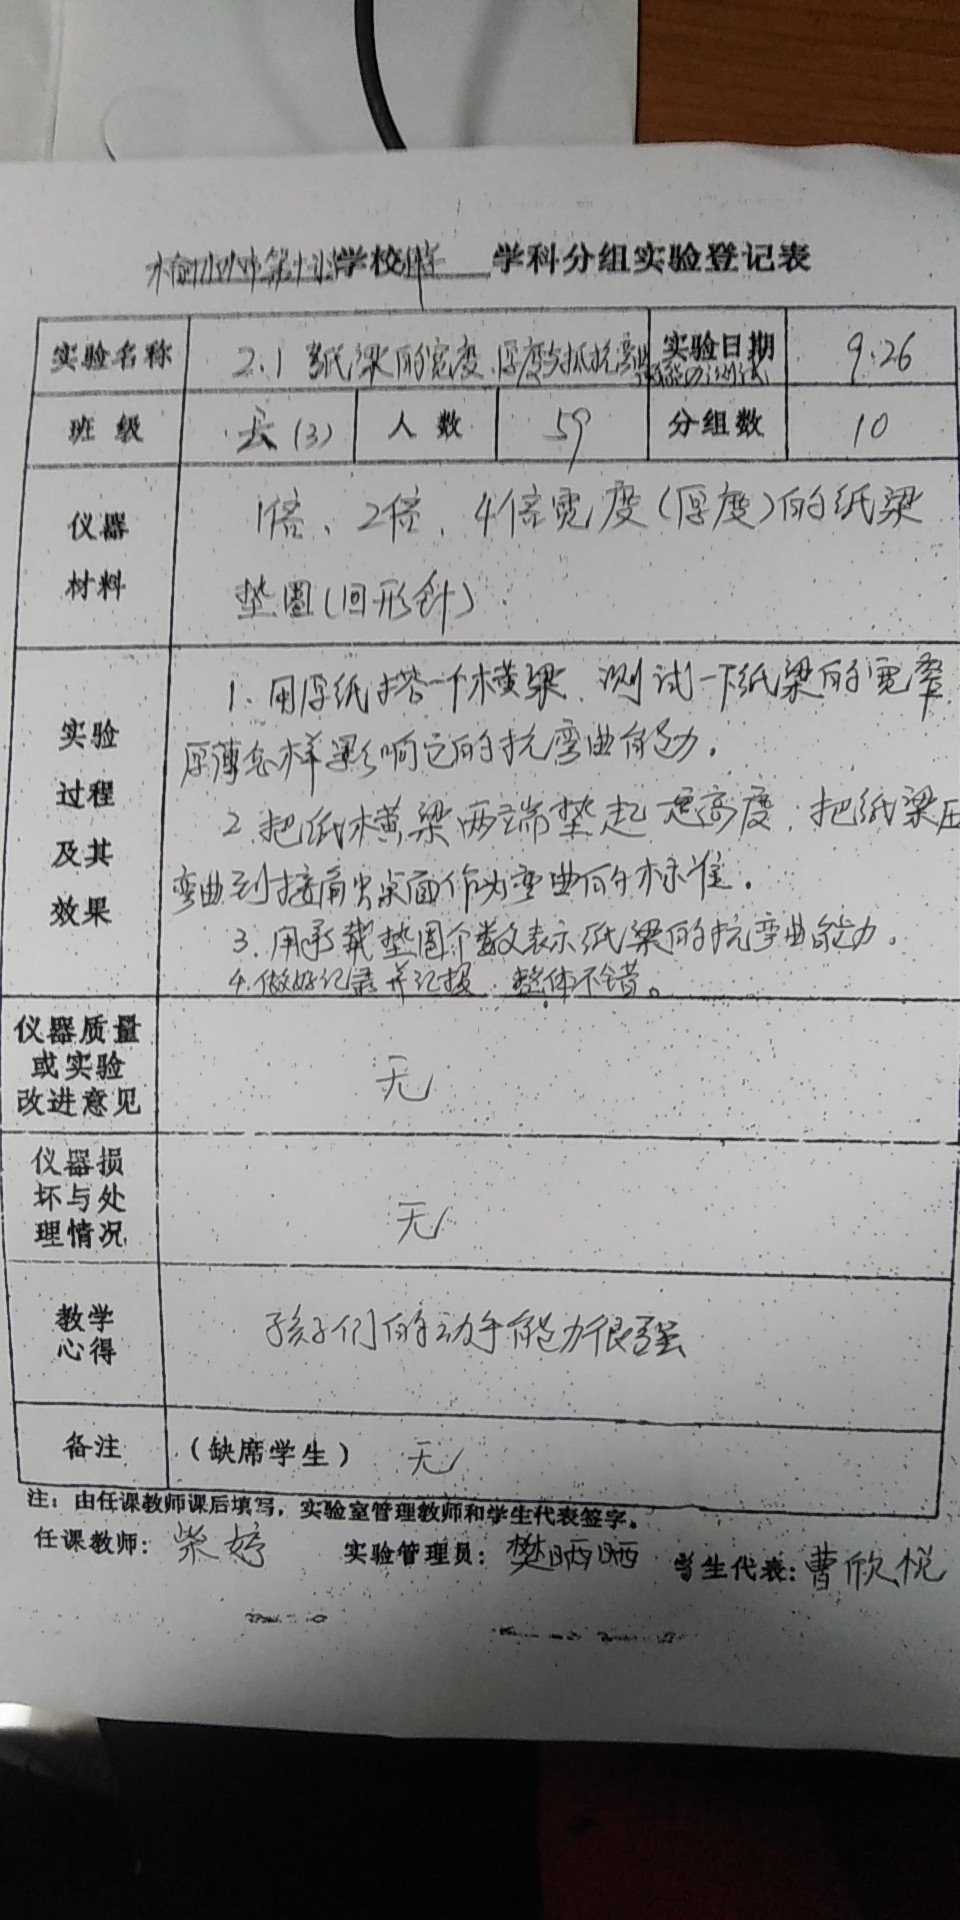 学校 学科分组实验登记表
实验名称 2.1 纸梁的宽度、厚度与抵抗弯曲 实验日期 9.26
班级 (3) 人数 59 分组数 10
仪器材料 1倍、2倍、4倍宽度(厚度)的纸梁
垫圈(回形针)
实验过程及其效果 1、用厚纸搭一个横梁,测试一下纸梁的宽窄
厚薄怎样影响它的抗弯曲能力。
2、把纸横梁两端垫起一定高度,把纸梁压
弯曲到接触桌面作为弯曲的标准。
3、用承载垫圈个数表示纸梁的抗弯曲能力。
4.做好记录并汇报,整体不错。
仪器质量或实验改进意见 无
仪器损坏与处理情况 无
教学心得 孩子们的动手能力很强
备注 (缺席学生) 无
注:由任课教师课后填写,实验室管理教师和学生代表签字。
任课教师:柴婷 实验管理员:樊晒晒 学生代表:曹欣悦